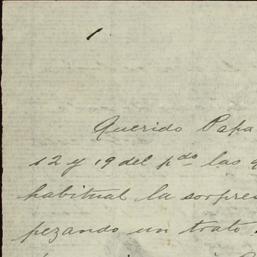 1.
Querido Papa
12 y 19 del pdo las
habitual la sorpre
pezando un trato